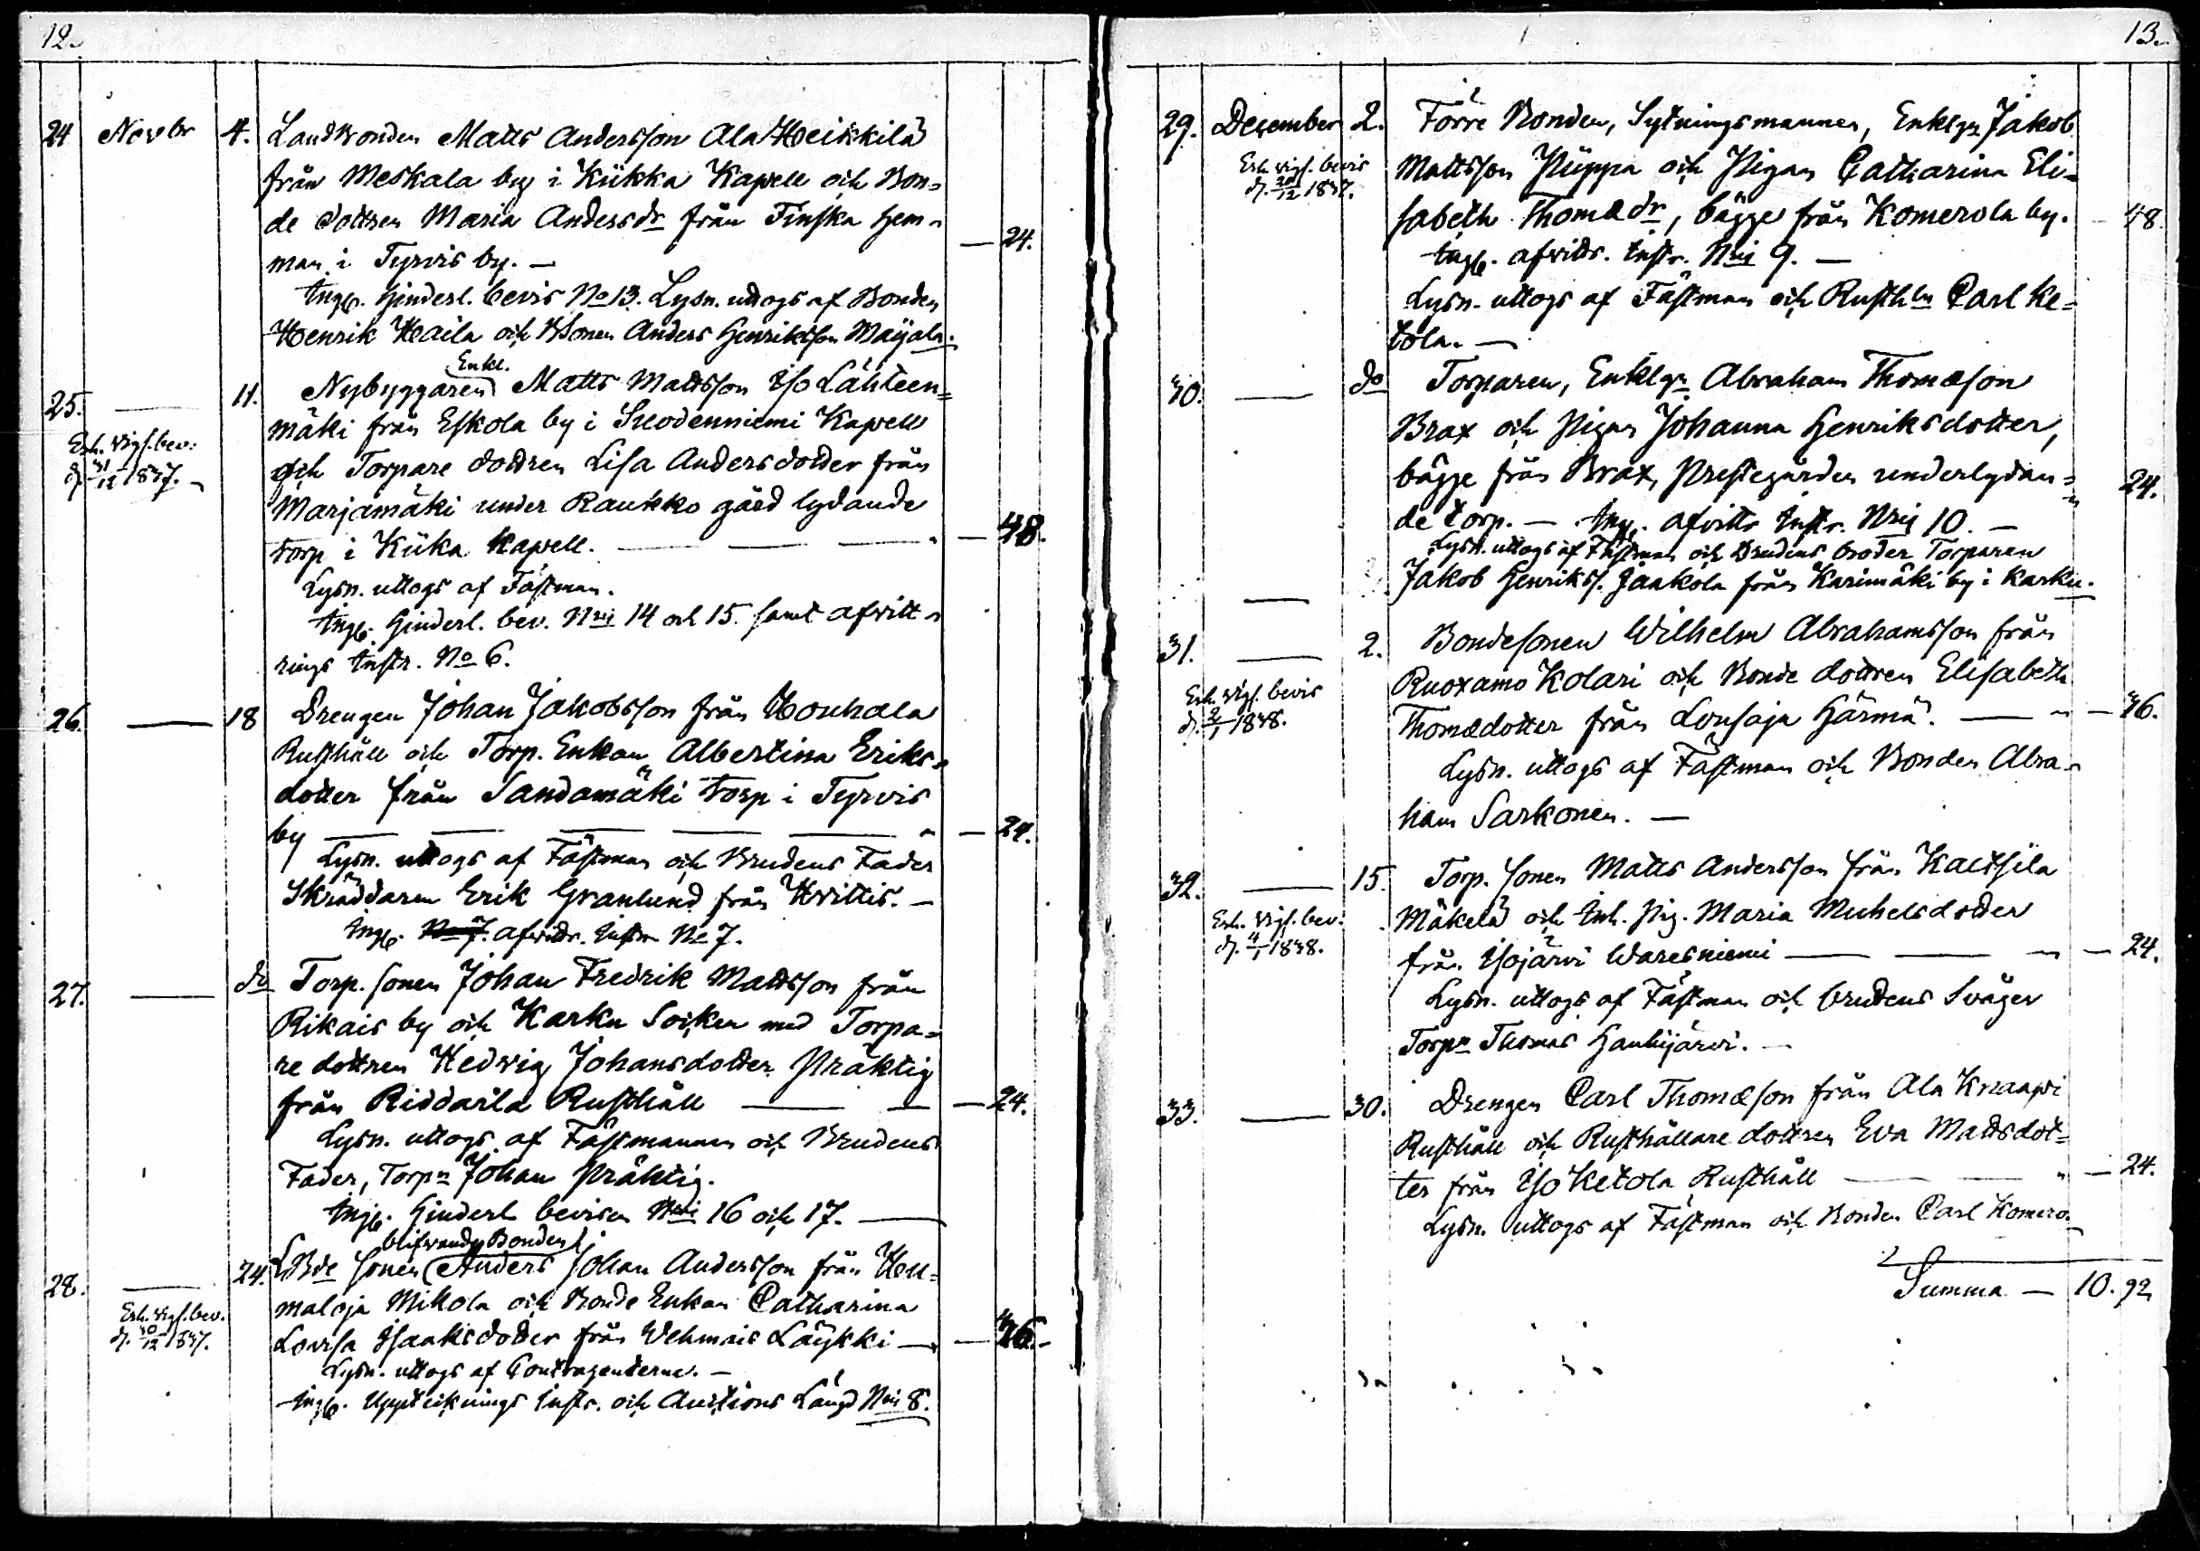 12.
24 Novbr 4. Landbonden Matts Andersson Ala Heikkilä
från Meskala by i Kiikka Kapell och Bon=
de dottren Maria Andersdr från Finska hem=
man i Tyrvis by. — — 24.
Ingb. hinderl. bevis No 13. Lysn. uttogs af Bonden
Henrik Haila och BSonen Anders Henriksson Mayala.
Enkl.
25. — 11. Nybyggaren Matts Mattsson Iso Lähteen=
mäki från Eskola by i Suodenniemi Kapell
Erh. vigs. bev.
d. 31/12 1837.
och Torpare dottren Lisa Andersdotter från
Marjamäki under Raukko gård lydande
torp i Kiika Kapell. — — — 48.
Lysn. uttogs af Fästman.
Ingb. Hinderl. bev. Nris 14 och 15. samt afvitt=
rings Instr. No 6.
26. — 18 Drengen Johan Jakobsson från Houhala
Rusthåll och Torp. Enkan Albertina Eriks=
dotter från Sandamäki torp i Tyrvis
by — — — — — " — 24.
Lysn. uttogs af Fästman och Brudens Fader
Skräddaren Erik Granlund från Hvittis. —
Ingb. No 7. afvittr. Instr. No 7.
27. — do Torp. sonen Johan Fredrik Mattsson från
Rikais by och Karku Socken med Torpa=
re dottren Hedvig Johansdotter Präktig
från Riddarla Rusthåll — — — 24.
Lysn. uttogs af Fästmannen och Brudens
Fader, Torpn Johan Präktig.
Ingb. Hinderl. bevisen Nris 16 och 17. —
blifvande Bonden
28. — 24. Bde sonen Anders Johan Andersson från Hu=
maloja Mikola och Bonde Enkan Catharina
Erh. vigs. bev.
d. 30/12 1837.
Lovisa Isaksdotter från Vehmais Läykki — — 36.
Lysn. uttogs af Contragenterne. —
Ingb. Upptecknings Instr. och Auctions Längd Nris 8.
13.
29. December 2. Förre Bonden, Sytningsmannen, Enklgn Jakob
Erh. vigs. bevis
d. 26/12 1837.
Mattsson Piippa och Pigan Catharina Eli=
sabeth Thomædr, bägge från Komerola by. — 48.
Ingb. afvittr. Instr. Nris 9. —
Lysn. uttogs af Fästman och Rusthln Carl Ke=
tola. —
30. — do Torparen, Enklgn Abraham Thomæson
Brax och Pigan Johanna Henriksdotter,
bägge från Brax, Prestegården underlydan= 24.
de torp. — Ingb. afvittr. Instr. Nris 10. —
Lysn. uttogs af Fästman och Brudens broder Torparen
Jakob Henrikss. Jaakola från Karimäki by i Karku.
31. — 2. Bondesonen Wilhelm Abrahamsson från
Ruoxamo Kolari och Bonde dottren Elisabeth
Erh. vigs. bevis
d. 2/1 1838.
Thomædotter från Lousaja Härmä. — " — 36.
Lysn. uttogs af Fästman och Bonden Abra=
ham Sarkonen. —
32. — 15. Torp. sonen Matts Andersson från Kaltsila
Erh. vigs. bev.
d. 4/1 1838.
Mäkelä och Inh. Pig. Maria Michelsdotter
från Isojärvi Waresniemi — — " — 24.
Lysn. uttogs af Fästman och brudens Svåger
Torpn Thomas Hanhijärvi. —
33. — 30. Drengen Carl Thomæson från Ala Knaapi
Rusthåll och Rusthållare dottren Eva Mattsdot=
ter från Iso Ketola Rusthåll — — " — 24.
Lysn. uttogs af Fästman och Bonden Carl Komero.
Summa — 10. 92